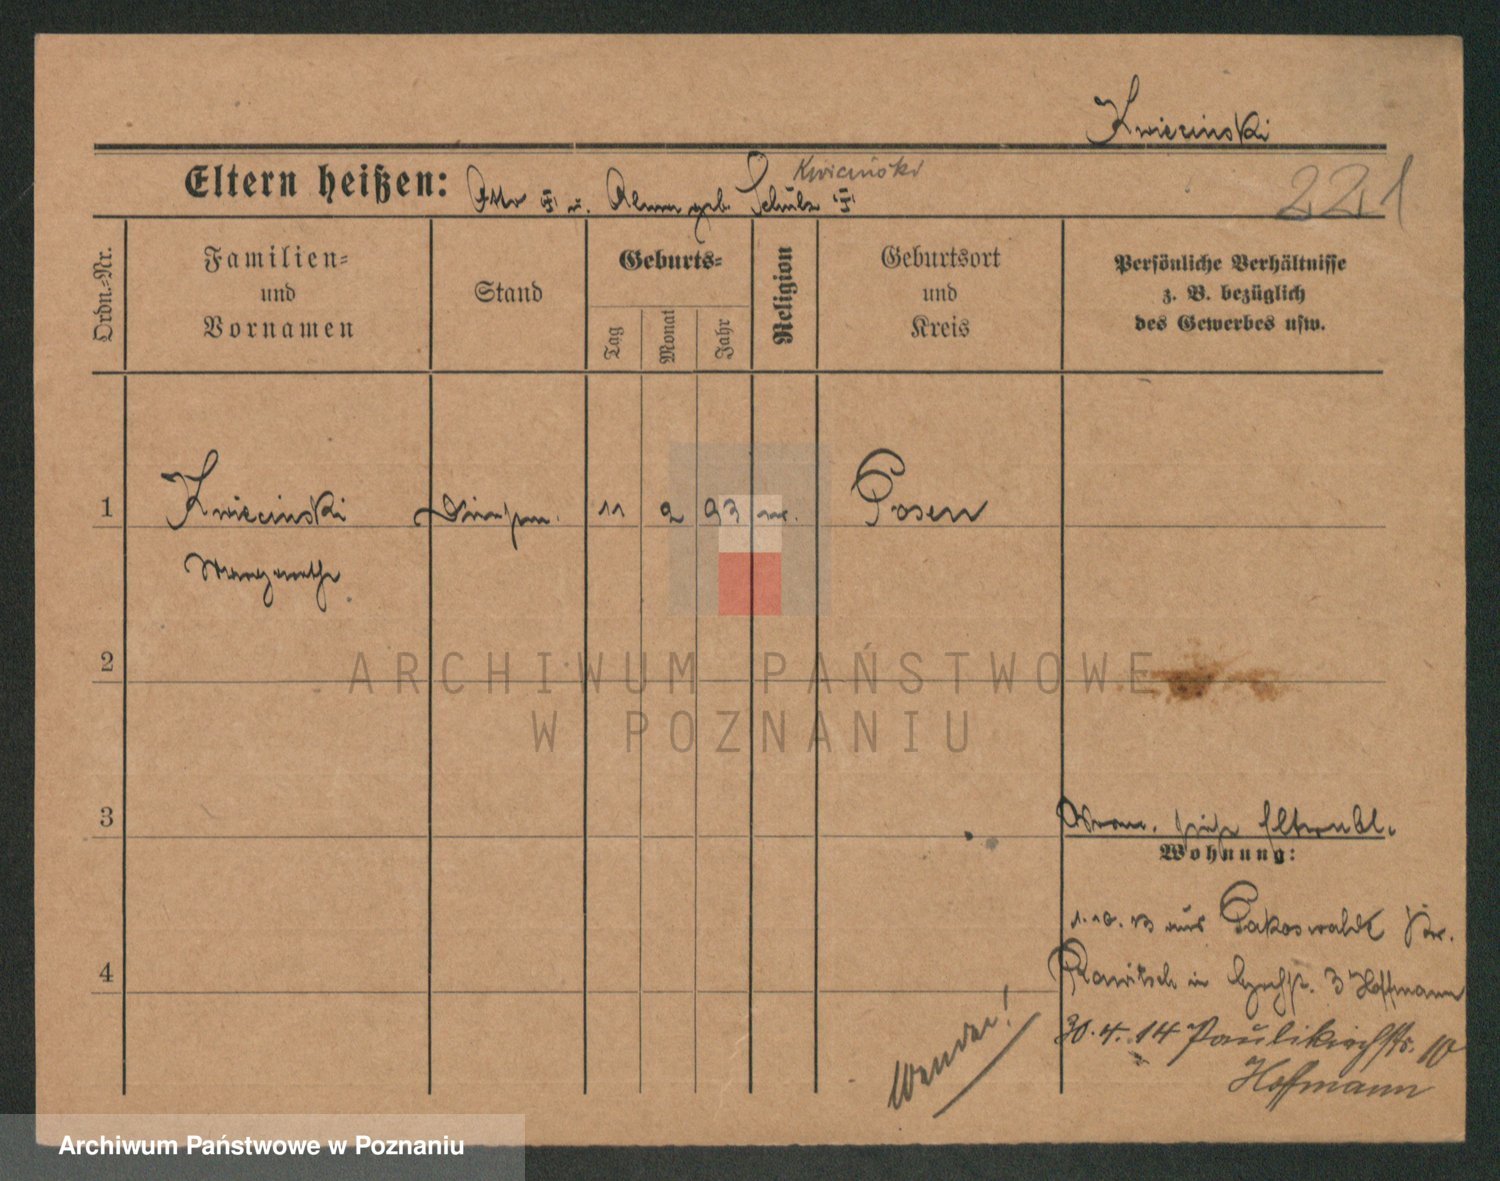 Kwiecinski
Eltern heißen: Otto † u. Alma geb. Schulz †
Kwiciński
221
Ordn.-Nr.
Familien-
und
Vornamen
Stand
Geburts-
Tag
Monat
Jahr
Religion
Geburtsort
und
Kreis
Persönliche Verhältnisse
z. B. bezüglich
des Gewerbes usw.
1 Kwiecinski 11 2 93 Posen
Margarethe
2
3
Verm. siehe Elternbl.
Wohnung:
1.10.13 aus Pakoswalde Kr.
4 Rawitsch in 3 Hoffmann
30.4.14 Paulikirchstr. 10
Hoffmann
Wenden!
ARCHIWUM PAŃSTWOWE
W POZNANIU
Archiwum Państwowe w Poznaniu